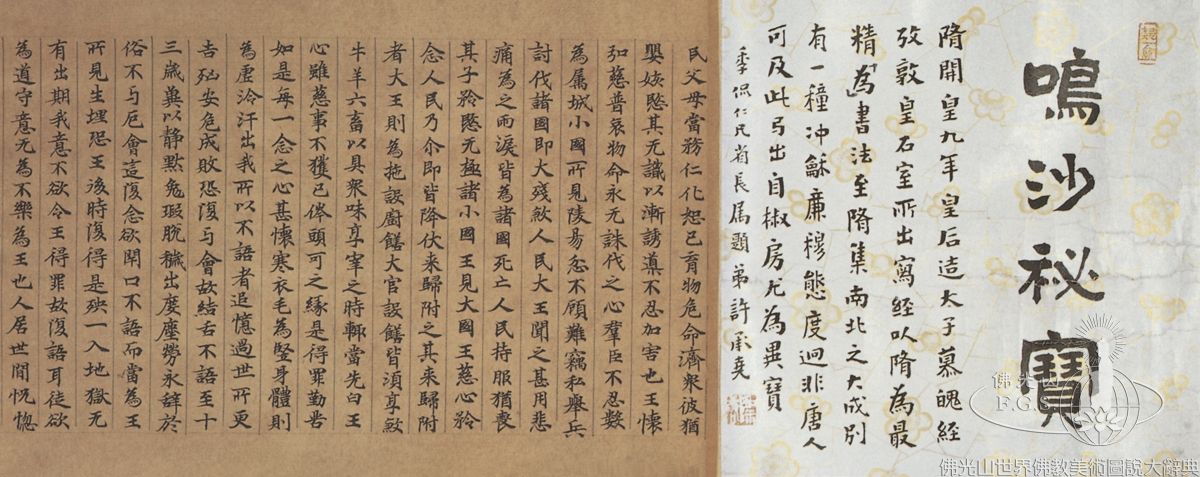 鳴沙秘寶
隋開皇九年皇后造大子慕魄經
攷敦皇石室所出寫經以隋為最
精為書法至隋集南北之大成別
有一種沖龢廉穆態度迥非唐人
可及此弓出自椒房尤為異寶
季侃仁兄省長属題弟許承堯
民父母當務仁化恕己育物危命濟衆彼猶
嬰孩愍其无識以漸誘導不忍加害也王懷
弘慈普哀物命永无誅伐之心羣臣不忍數
為屬城小國所見陵易忿不顧難竊私舉兵
討伐諸國即大殘煞人民大王聞之甚用悲
痛為之雨淚皆為諸國死亡人民持服猶喪
其子矜愍无極諸小國王見大國王慈心矜
念人民乃尒即皆降伏来歸附之其来歸附
者大王則為拖設廚饍大官設饍皆湏享煞
牛羊六畜以具衆味享宰之時輙當先白王
心雖慈事不獲已俸頭可之緣是得罪勤苦
如是每一念之心甚懷寒衣毛為竪身體則
為虛冷汗出我所以不語者追憶過世所更
吉凶安危成敗恐復与會故結舌不語至十
三歲冀以静點免瑕脫穢出度塵勞永辞於
俗不与厄會這復念欲閉口不語而當為王
所見生埋恐王後時復得是殃一入地獄无
有出期我意不欲令王得罪故復語耳徒欲
為道守意无為不樂為王也人居世間怳惚
佛光山
F.G.S
佛光山世界佛教美術圖說大辭典